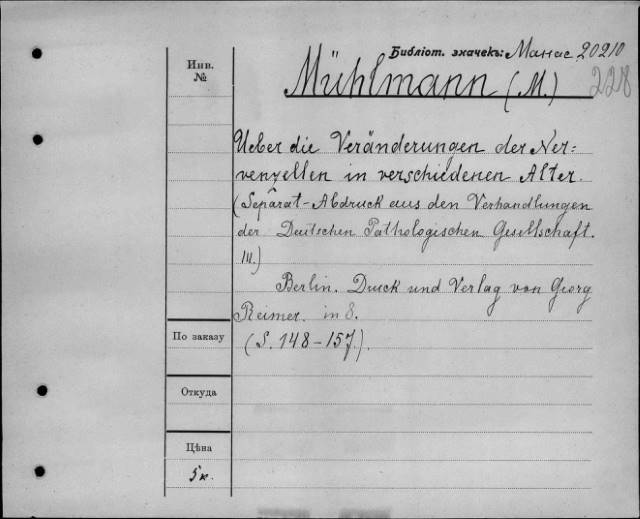 Библіот. значекъ: Манас 20210
Инв.
№
Mühlmann (M.)
228
Ueber die Veränderungen der Ner=
venzellen in verschiedenen Alter.
(Separat-Abdruck aus den Verhandlungen
der Deutschen Pathologischen Gesellschaft.
III.)
Berlin. Druck und Verlag von Georg
Reimer. in 8.
По заказу
(S. 148-157.).
Откуда
Цѣна
5 к.